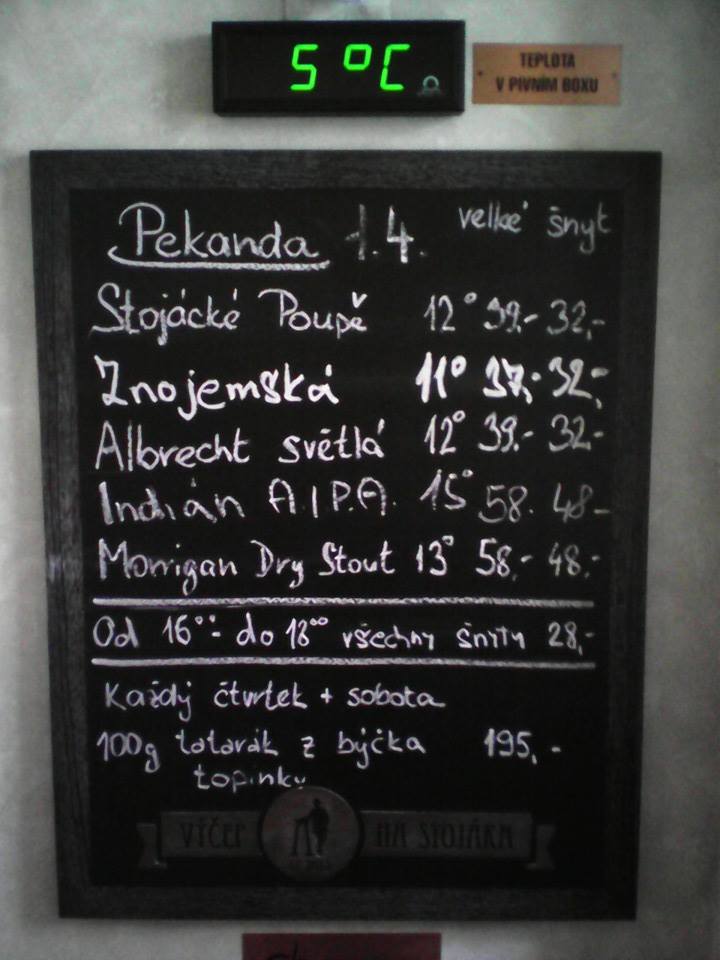 5 °C
TEPLOTA
V PIVNÍM BOXU
Pekanda 1.4. velké šnyt
Stojácké Poupě 12° 39.- 32,-
Znojemská 11° 37,- 32,-
Albrecht světlá 12° 39.- 32-
Indián A.I.P.A. 15° 58. 48-
Morrigan Dry Stout 13° 58,- 48,-
Od 16°°- do 18°° všechny šnyty 28,-
Každý čtvrtek + sobota
100g tatarák z býčka 195,-
topinky
VÝČEP NA STOJÁKA